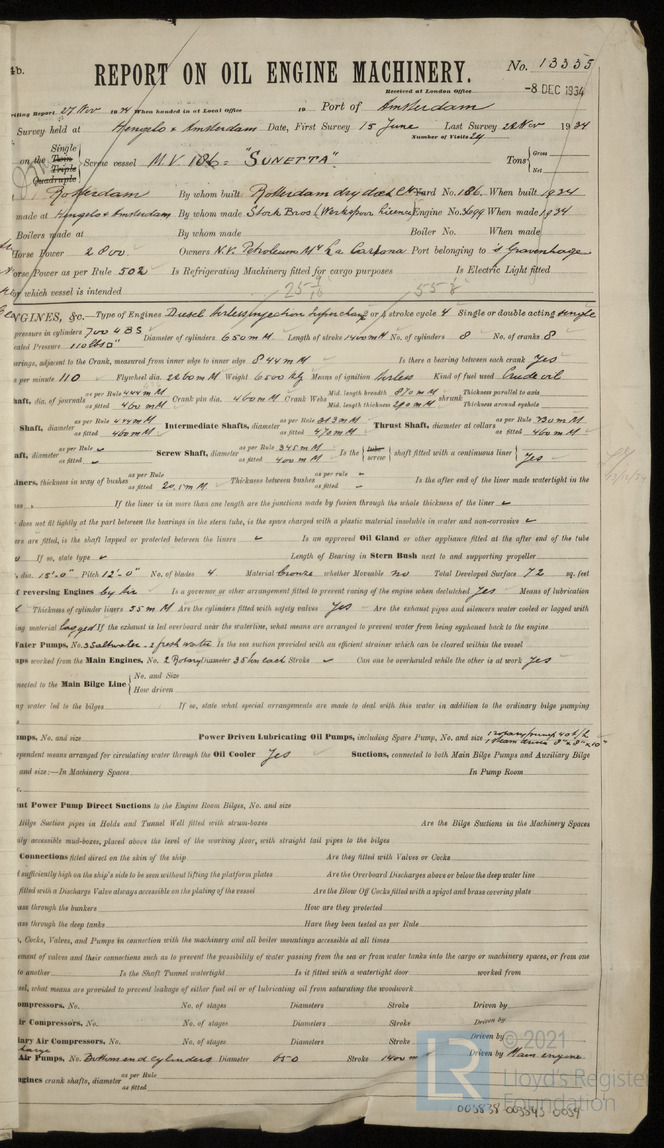 4b.
REPORT ON OIL ENGINE MACHINERY.
No. 13335
Received at London Office
-8 DEC 1934
riting Report 27 Nov 1934 When handed in at Local Office 19 Port of Amsterdam
Survey held at Hengelo & Amsterdam Date, First Survey 15 June Last Survey 22 Nov 1934
Number of Visits 24
on the Single Twin Triple Quadruple Screw vessel M.V. 186 = "SUNETTA" Tons Gross Net
Rotterdam By whom built Rotterdam dry dock Co Yard No. 186 When built 1934
made at Hengelo & Amsterdam By whom made Stork Bros (Werkspoor License) Engine No. 3699 When made 1934
Boilers made at By whom made Boiler No. When made
Horse Power 2800 Owners N.V. Petroleum My La Corona Port belonging to 's Gravenhage
orse Power as per Rule 502 Is Refrigerating Machinery fitted for cargo purposes Is Electric Light fitted
by which vessel is intended
NGINES, &c.—Type of Engines Diesel airless injection supercharge 2 or 4 stroke cycle 4 Single or double acting single
pressure in cylinders 700 lbs Diameter of cylinders 650 mM Length of stroke 1400 mM No. of cylinders 8 No. of cranks 8
cated Pressure 110 lbs □"
arings, adjacent to the Crank, measured from inner edge to inner edge 844 mM Is there a bearing between each crank Yes
s per minute 110 Flywheel dia. 2260 mM Weight 6500 Kg Means of ignition airless Kind of fuel used Crude oil
haft, dia. of journals as per Rule 444 mM as fitted 460 mM Crank pin dia. 460 mM Crank Webs Mid. length breadth 870 mM Mid. length thickness 290 mM shrunk Thickness parallel to axis Thickness around eyehole
Shaft, diameter as per Rule 444 mM as fitted 460 mM Intermediate Shafts, diameter as per Rule 313 mM as fitted 470 mM Thrust Shaft, diameter at collars as per Rule 330 mM as fitted 460 mM
aft, diameter as per Rule as fitted Screw Shaft, diameter as per Rule 345 mM as fitted 400 mM Is the tube screw shaft fitted with a continuous liner Yes
iners, thickness in way of bushes as per Rule as fitted 20.5 mM Thickness between bushes as per rule as fitted Is the after end of the liner made watertight in the
ss If the liner is in more than one length are the junctions made by fusion through the whole thickness of the liner
does not fit tightly at the part between the bearings in the stern tube, is the space charged with a plastic material insoluble in water and non-corrosive
ers are fitted, is the shaft lapped or protected between the liners Is an approved Oil Gland or other appliance fitted at the after end of the tube
If so, state type Length of Bearing in Stern Bush next to and supporting propeller
, dia. 15'-0" Pitch 12'-0" No. of blades 4. Material bronze whether Moveable no Total Developed Surface 72 sq. feet
f reversing Engines by air Is a governor or other arrangement fitted to prevent racing of the engine when declutched Yes Means of lubrication
Thickness of cylinder liners 55 mM Are the cylinders fitted with safety valves Yes Are the exhaust pipes and silencers water cooled or lagged with
ing material lagged If the exhaust is led overboard near the waterline, what means are arranged to prevent water from being syphoned back to the engine
Water Pumps, No. 3 Saltwater - 2 fresh water Is the sea suction provided with an efficient strainer which can be cleared within the vessel
mps worked from the Main Engines, No. 2 Rotary Diameter 35 ts each Stroke Can one be overhauled while the other is at work Yes
nnected to the Main Bilge Line No. and Size How driven
ng water led to the bilges If so, state what special arrangements are made to deal with this water in addition to the ordinary bilge pumping
s
umps, No. and size Power Driven Lubricating Oil Pumps, including Spare Pump, No. and size 1 rotary pump 40 t/h 1 steam driven 8" x 8" x 10"
ependent means arranged for circulating water through the Oil Cooler Yes Suctions, connected to both Main Bilge Pumps and Auxiliary Bilge
and size:—In Machinery Spaces In Pump Room
c.
nt Power Pump Direct Suctions to the Engine Room Bilges, No. and size
Bilge Suction pipes in Holds and Tunnel Well fitted with strum-boxes Are the Bilge Suctions in the Machinery Spaces
ily accessible mud-boxes, placed above the level of the working floor, with straight tail pipes to the bilges
Connections fitted direct on the skin of the ship Are they fitted with Valves or Cocks
sufficiently high on the ship's side to be seen without lifting the platform plates Are the Overboard Discharges above or below the deep water line
fitted with a Discharge Valve always accessible on the plating of the vessel Are the Blow Off Cocks fitted with a spigot and brass covering plate
ass through the bunkers How are they protected
ass through the deep tanks Have they been tested as per Rule
, Cocks, Valves, and Pumps in connection with the machinery and all boiler mountings accessible at all times
ement of valves and their connections such as to prevent the possibility of water passing from the sea or from water tanks into the cargo or machinery spaces, or from one
to another Is the Shaft Tunnel watertight Is it fitted with a watertight door worked from
sel, what means are provided to prevent leakage of either fuel oil or of lubricating oil from saturating the woodwork
ompressors, No. No. of stages Diameters Stroke Driven by
ir Compressors, No. No. of stages Diameters Stroke Driven by
iary Air Compressors, No. No. of stages Diameters Stroke Driven by
Air Pumps, No. Bottom end cylinders Diameter 650 Stroke 1400 m Driven by Main engine
ngines crank shafts, diameter as per Rule as fitted
LR © 2021
Lloyd's Register
Foundation
003838-003843-0039